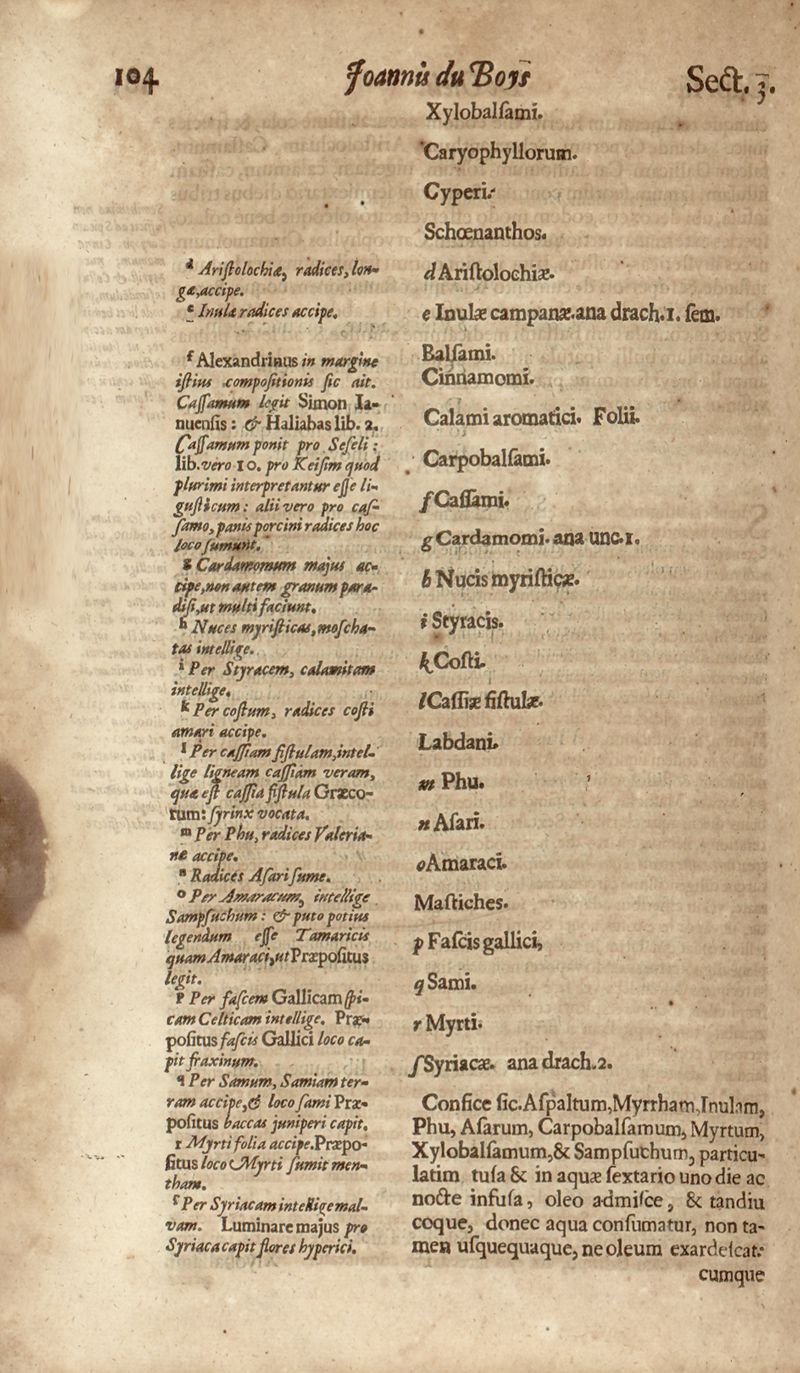 104 Joannis du Boys Sect. 3.
Xylobalſami.
Caryophyllorum.
Cyperi.
Schœnanthos.
d Ariſtolochiæ.
e Inulæ campanæ.ana drach.1. ſem.
Balſami.
Cinnamomi.
Calami aromatici. Folii.
Carpobalſami.
f Caſſami.
g Cardamomi. ana unc.1.
h Nucis myriſticæ.
i Styracis.
k Coſti.
l Caſſiæ fiſtulæ.
Labdani.
m Phu.
n Aſari.
o Amaraci.
Maſtiches.
p Faſcis gallici,
q Sami.
r Myrti.
ſ Syriacæ. ana drach.2.
Confice ſic.Aſpaltum,Myrrham,Inulam,
Phu, Aſarum, Carpobalſamum, Myrtum,
Xylobalſamum,& Sampſuchum, particu-
latim tuſa & in aquæ ſextario uno die ac
nocte infuſa, oleo admiſce, & tandiu
coque, donec aqua conſumatur, non ta-
men uſquequaque, ne oleum exardeſcat:
cumque
d Ariſtolochiæ, radices, lon-
gæ,accipe.
e Inulæ radices accipe.
f Alexandrinus in margine
iſtius compoſitionis ſic ait.
Caſſamum legit Simon Ja-
nuenſis: & Haliabas lib. 2.
Caſſamum ponit pro Seſeli:
lib.vero 10. pro Keiſim quod
plurimi interpretantur eſſe li-
guſticum: alii vero pro caſ-
ſamo, panis porcini radices hoc
loco ſumunt.
g Cardamomum majus ac-
cipe,non autem granum para-
diſi,ut multi faciunt.
h Nuces myriſticas,moſcha-
tas intellige.
i Per Styracem, calamitam
intellige.
k Per coſtum, radices coſti
amari accipe.
l Per caſſiam fiſtulam,intel-
lige ligneam caſſiam veram,
quæ eſt caſſia fiſtula Græco-
rum: ſyrinx vocata.
m Per Phu, radices Valeria-
næ accipe.
n Radices Aſari ſume.
o Per Amaracum, intellige
Sampſuchum: & puto potius
legendum eſſe Tamaricis
quam Amaraci,ut Præpoſitus
legit.
p Per faſcem Gallicam ſpi-
cam Celticam intellige. Præ-
poſitus faſcis Gallici loco ca-
pit fraxinum.
q Per Samum, Samiam ter-
ram accipe,& loco ſami Præ-
poſitus baccas juniperi capit.
r Myrti folia accipe.Præpo-
ſitus loco Myrti ſumit men-
tham.
ſ Per Syriacam intellige mal-
vam. Luminare majus pro
Syriaca capit flores hyperici.